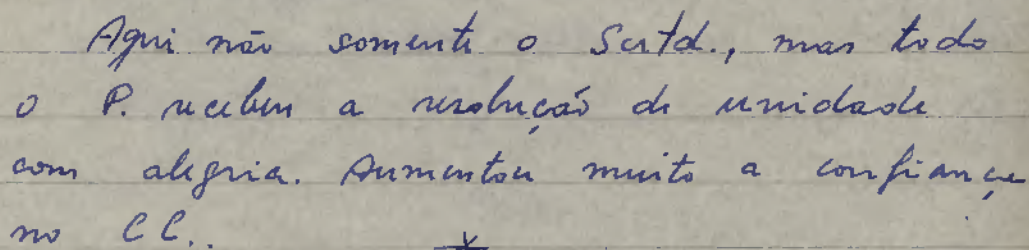 Aqui não somente o Scrtd., mas todo
o P. recebeu a resolução de unidade
com alegria. Aumentou muito a confiança
no CC..